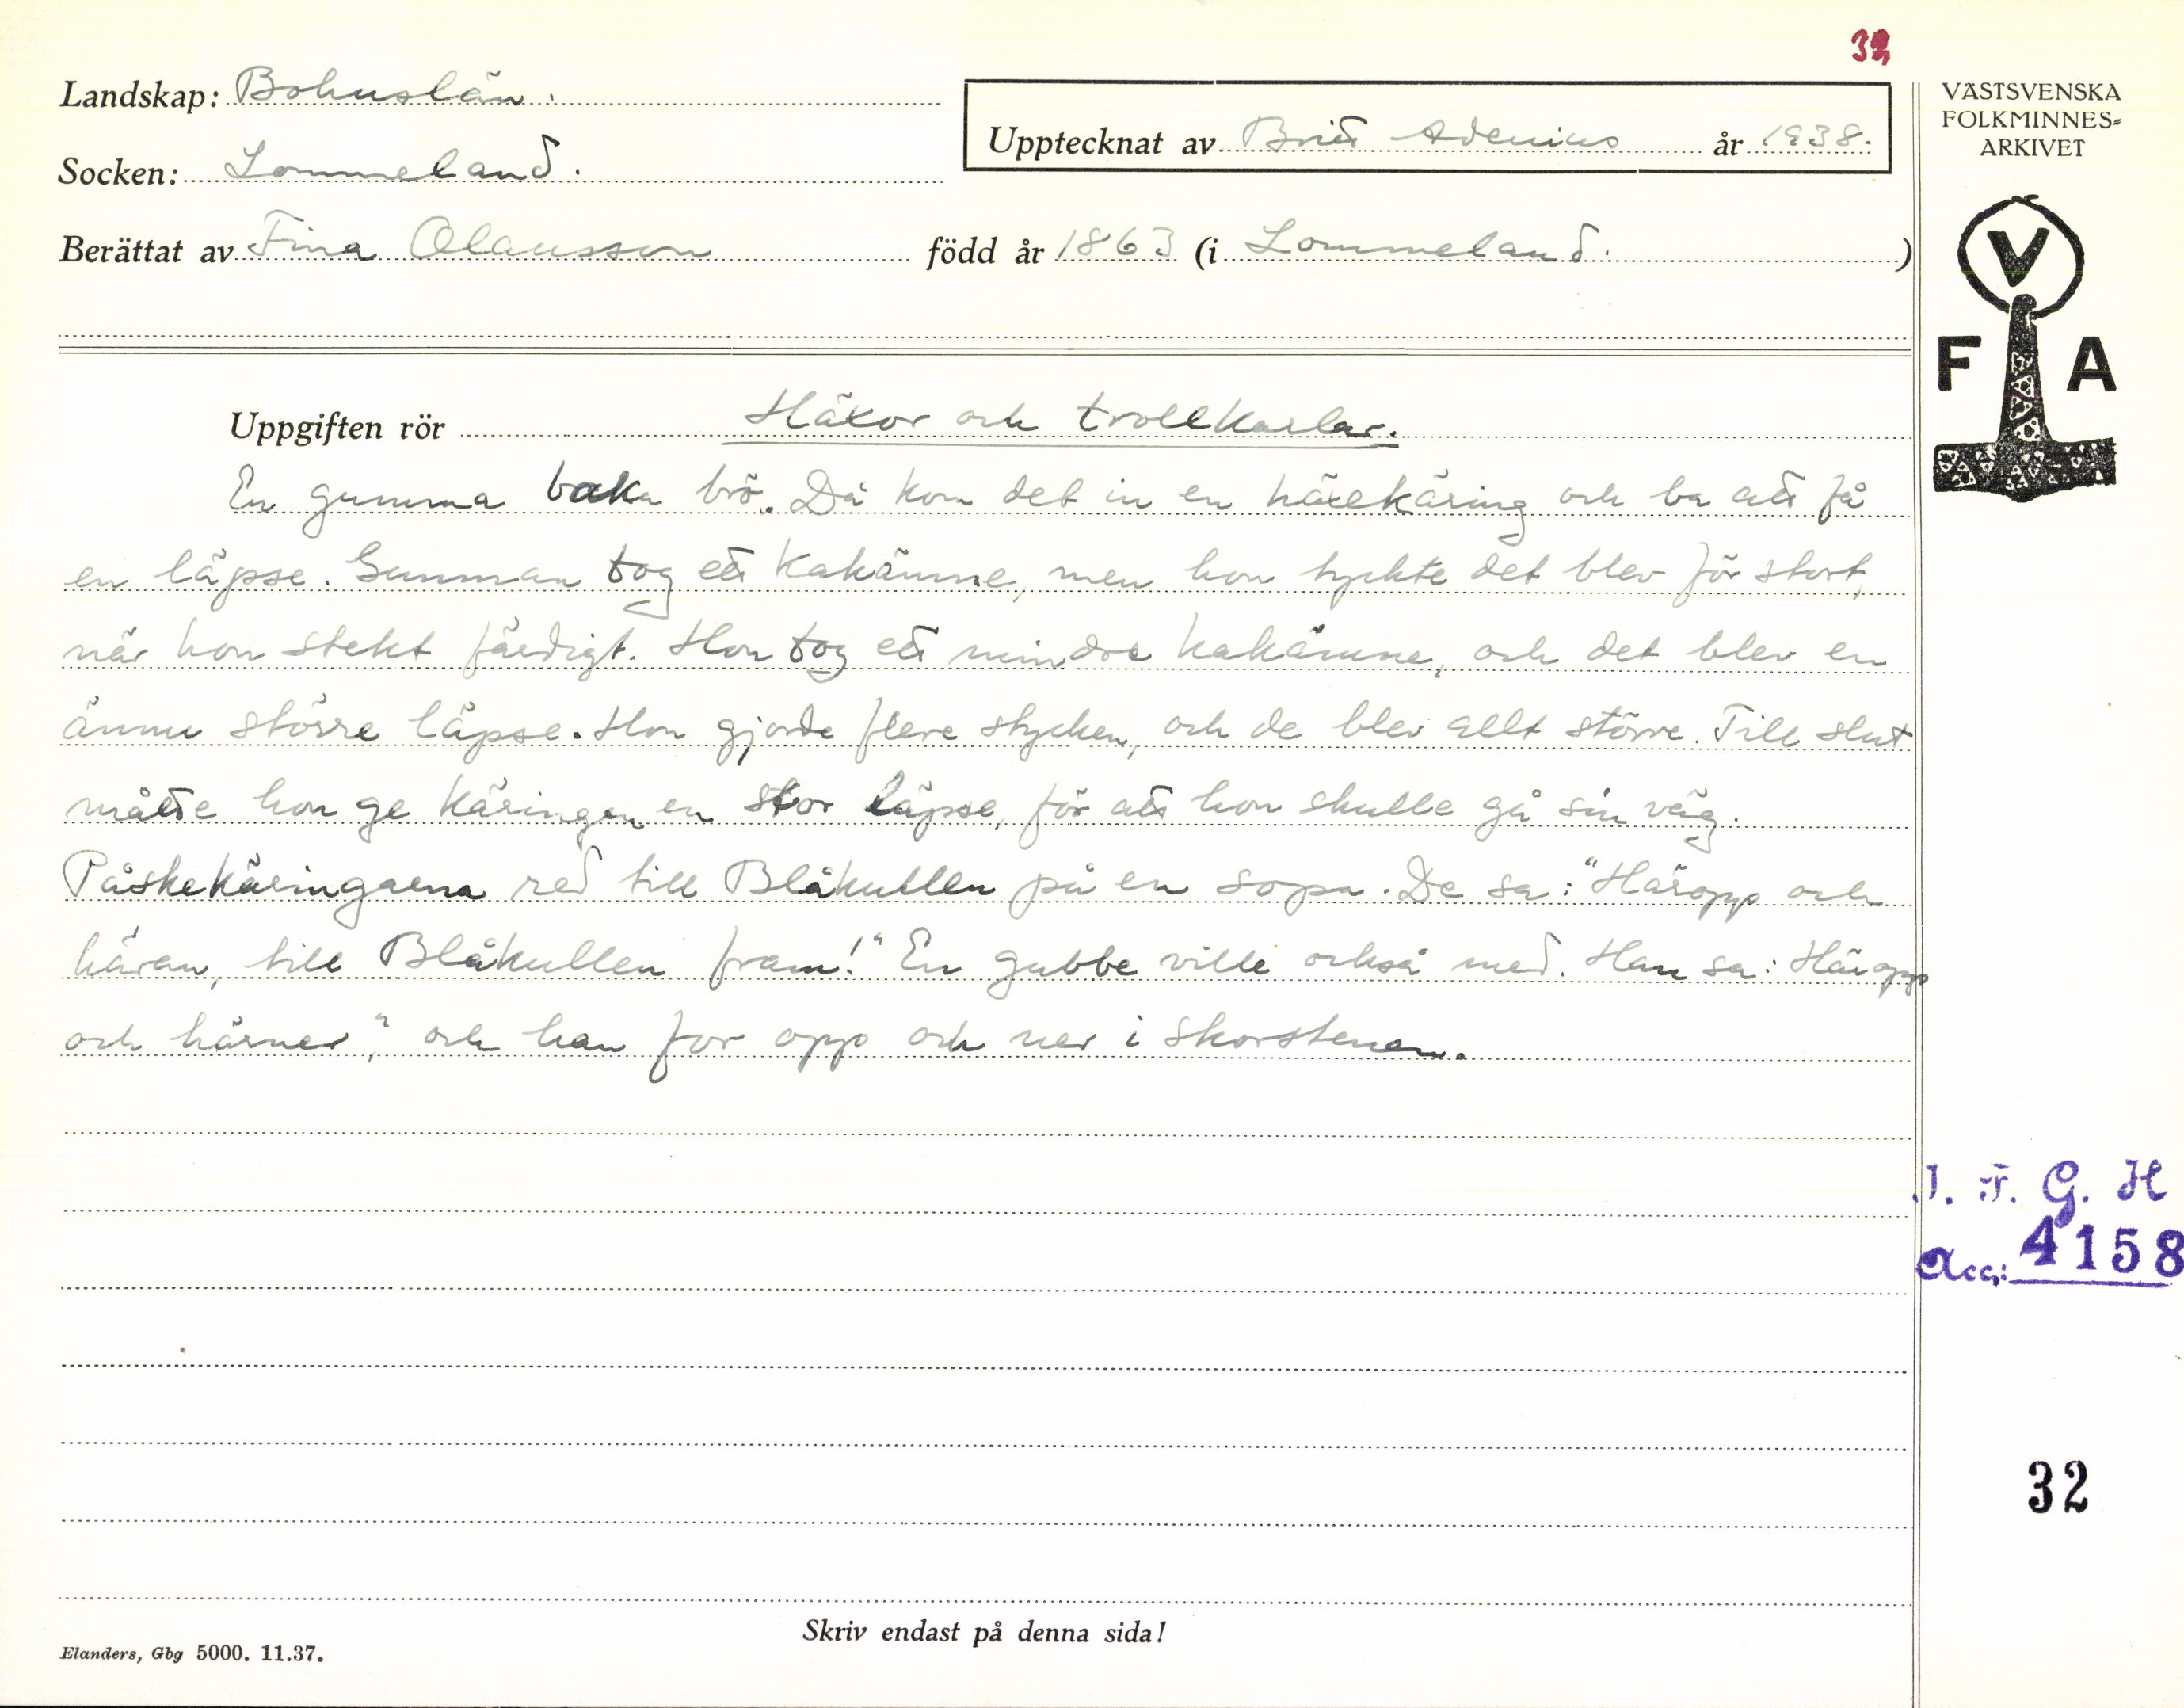 32
Landskap: Bohuslän.
Socken: Lommeland.
Upptecknat av Brit Adenius år 1938.
Berättat av Fina Olausson född år 1863 (i Lommeland.)
VÄSTSVENSKA
FOLKMINNES=
ARKIVET
V
F A
Uppgiften rör Häxor och trollkarlar.
En gumma baka brö. Då kom det in en häxekäring och ba att få
en läpse. Gumman tog ett kakämne, men hon tyckte det blev för stort,
när hon stekt färdigt. Hon tog ett mindre kakämne, och det blev en
ännu större läpse. Hon gjorde flere stycken, och de blev allt större. Till slut
måtte hon ge käringen en stor läpse, för att hon skulle gå sin väg.
Påskekäringarna red till Blåkullen på en sopa. De sa: "Häropp och
häran, till Blåkullen fram!" En gubbe ville också med. Han sa: Häropp
och härner," och han for opp och ner i skorstenen.
I. F. G. H
Acc: 4158
32
Skriv endast på denna sida!
Elanders, Gbg 5000. 11.37.